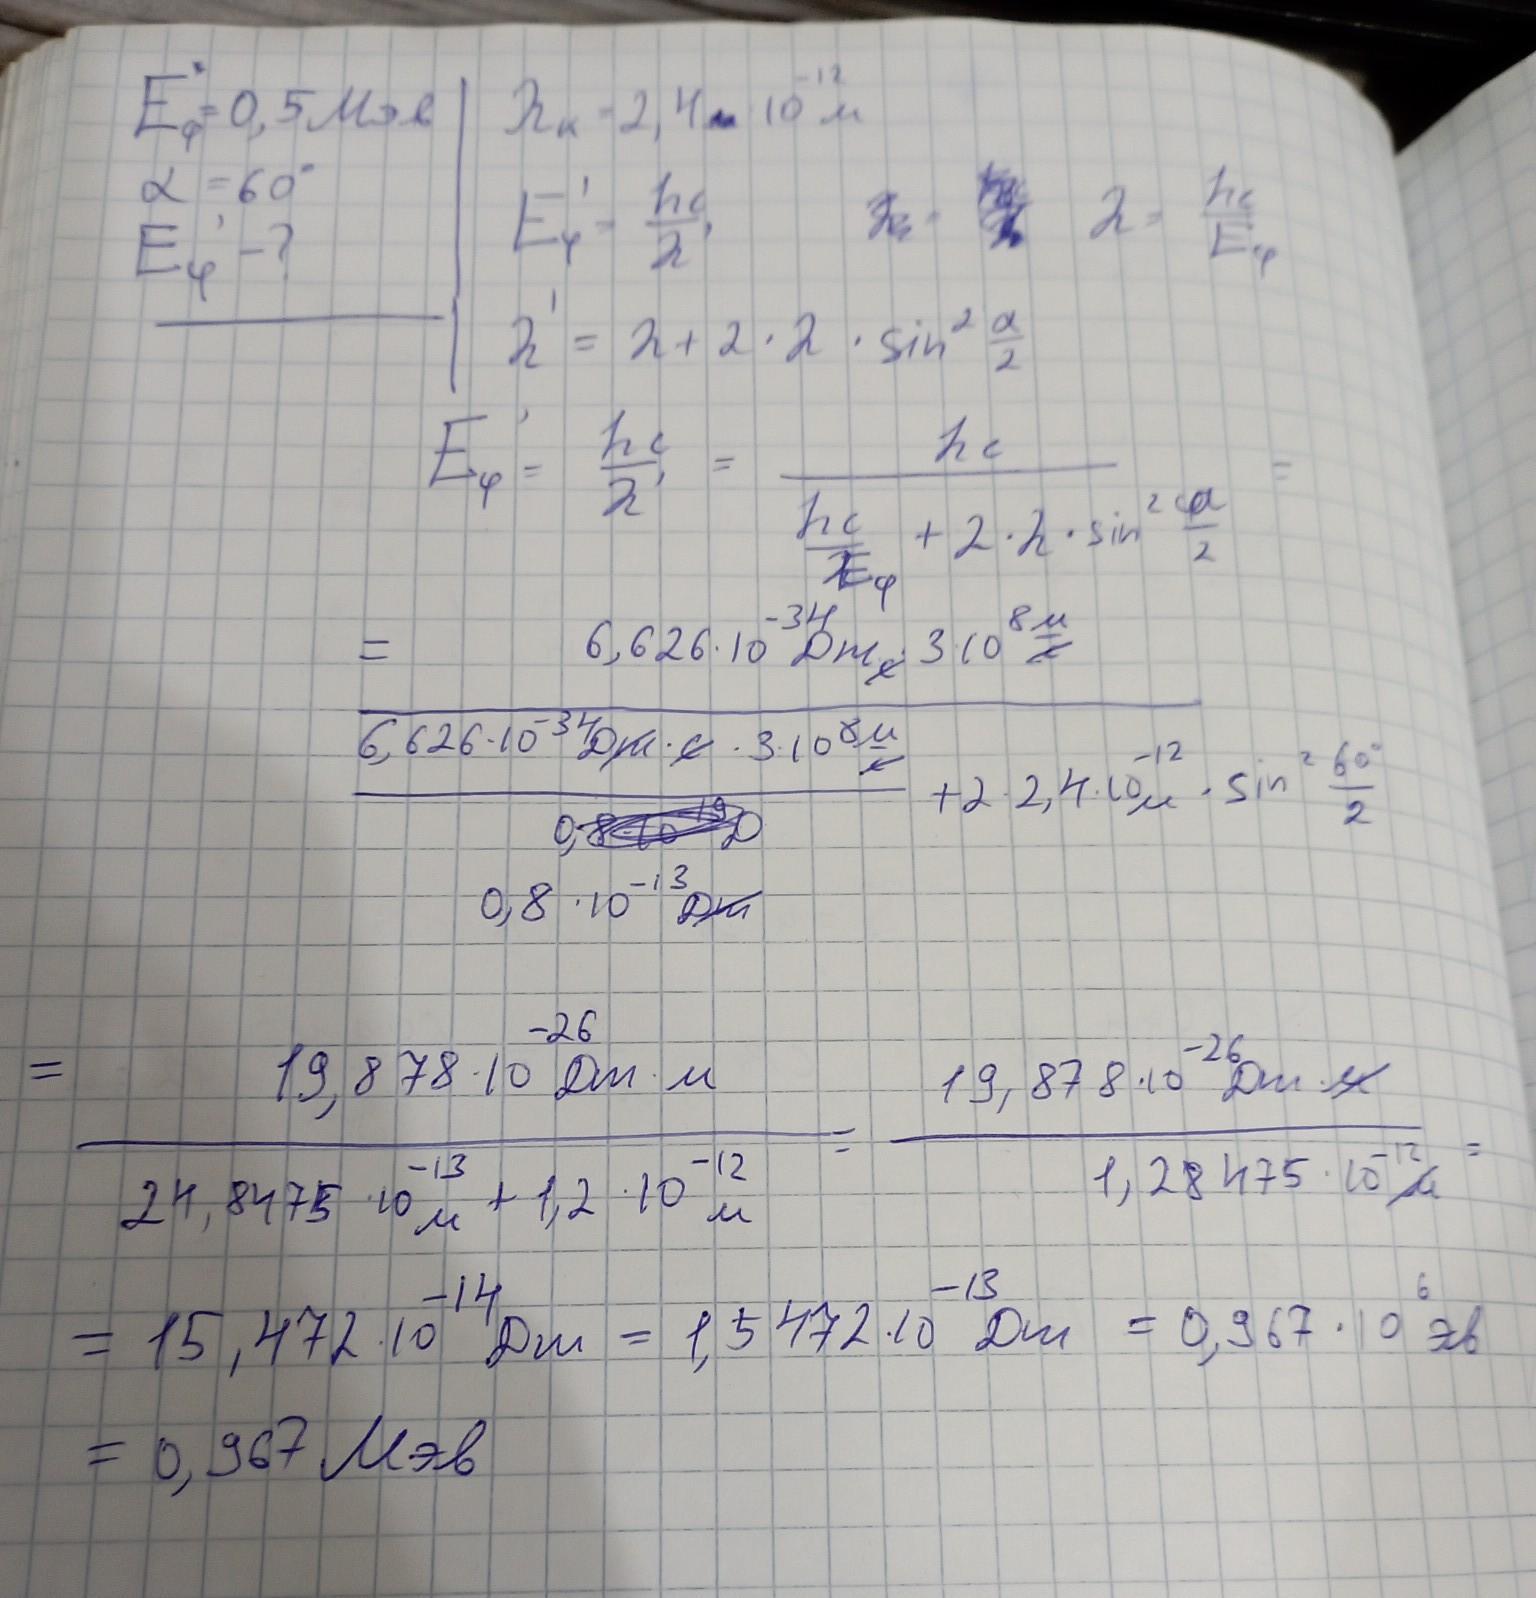 Eφ = 0,5 Мэв
α = 60°
Eφ' - ?
λк = 2,4 · 10⁻¹² м
Eφ' = hc/λ' λ = hc/Eφ
λ' = λ + 2 · λ · sin² α/2
Eφ' = hc/λ' = hc/(hc/Eφ + 2 · λ · sin² α/2) =
= 6,626 · 10⁻³⁴ Дж · с · 3 · 10⁸ м/с
6,626 · 10⁻³⁴ Дж · с · 3 · 10⁸ м/с + 2 · 2,4 · 10⁻¹² м · sin² 60°/2
0,8 · 10⁻¹³ Дж
= 19,878 · 10⁻²⁶ Дж · м / (24,8475 · 10⁻¹³ м + 1,2 · 10⁻¹² м) = 19,878 · 10⁻²⁶ Дж · м / 1,28475 · 10⁻¹² м =
= 15,472 · 10⁻¹⁴ Дж = 1,5472 · 10⁻¹³ Дж = 0,967 · 10⁶ эв
= 0,967 Мэв